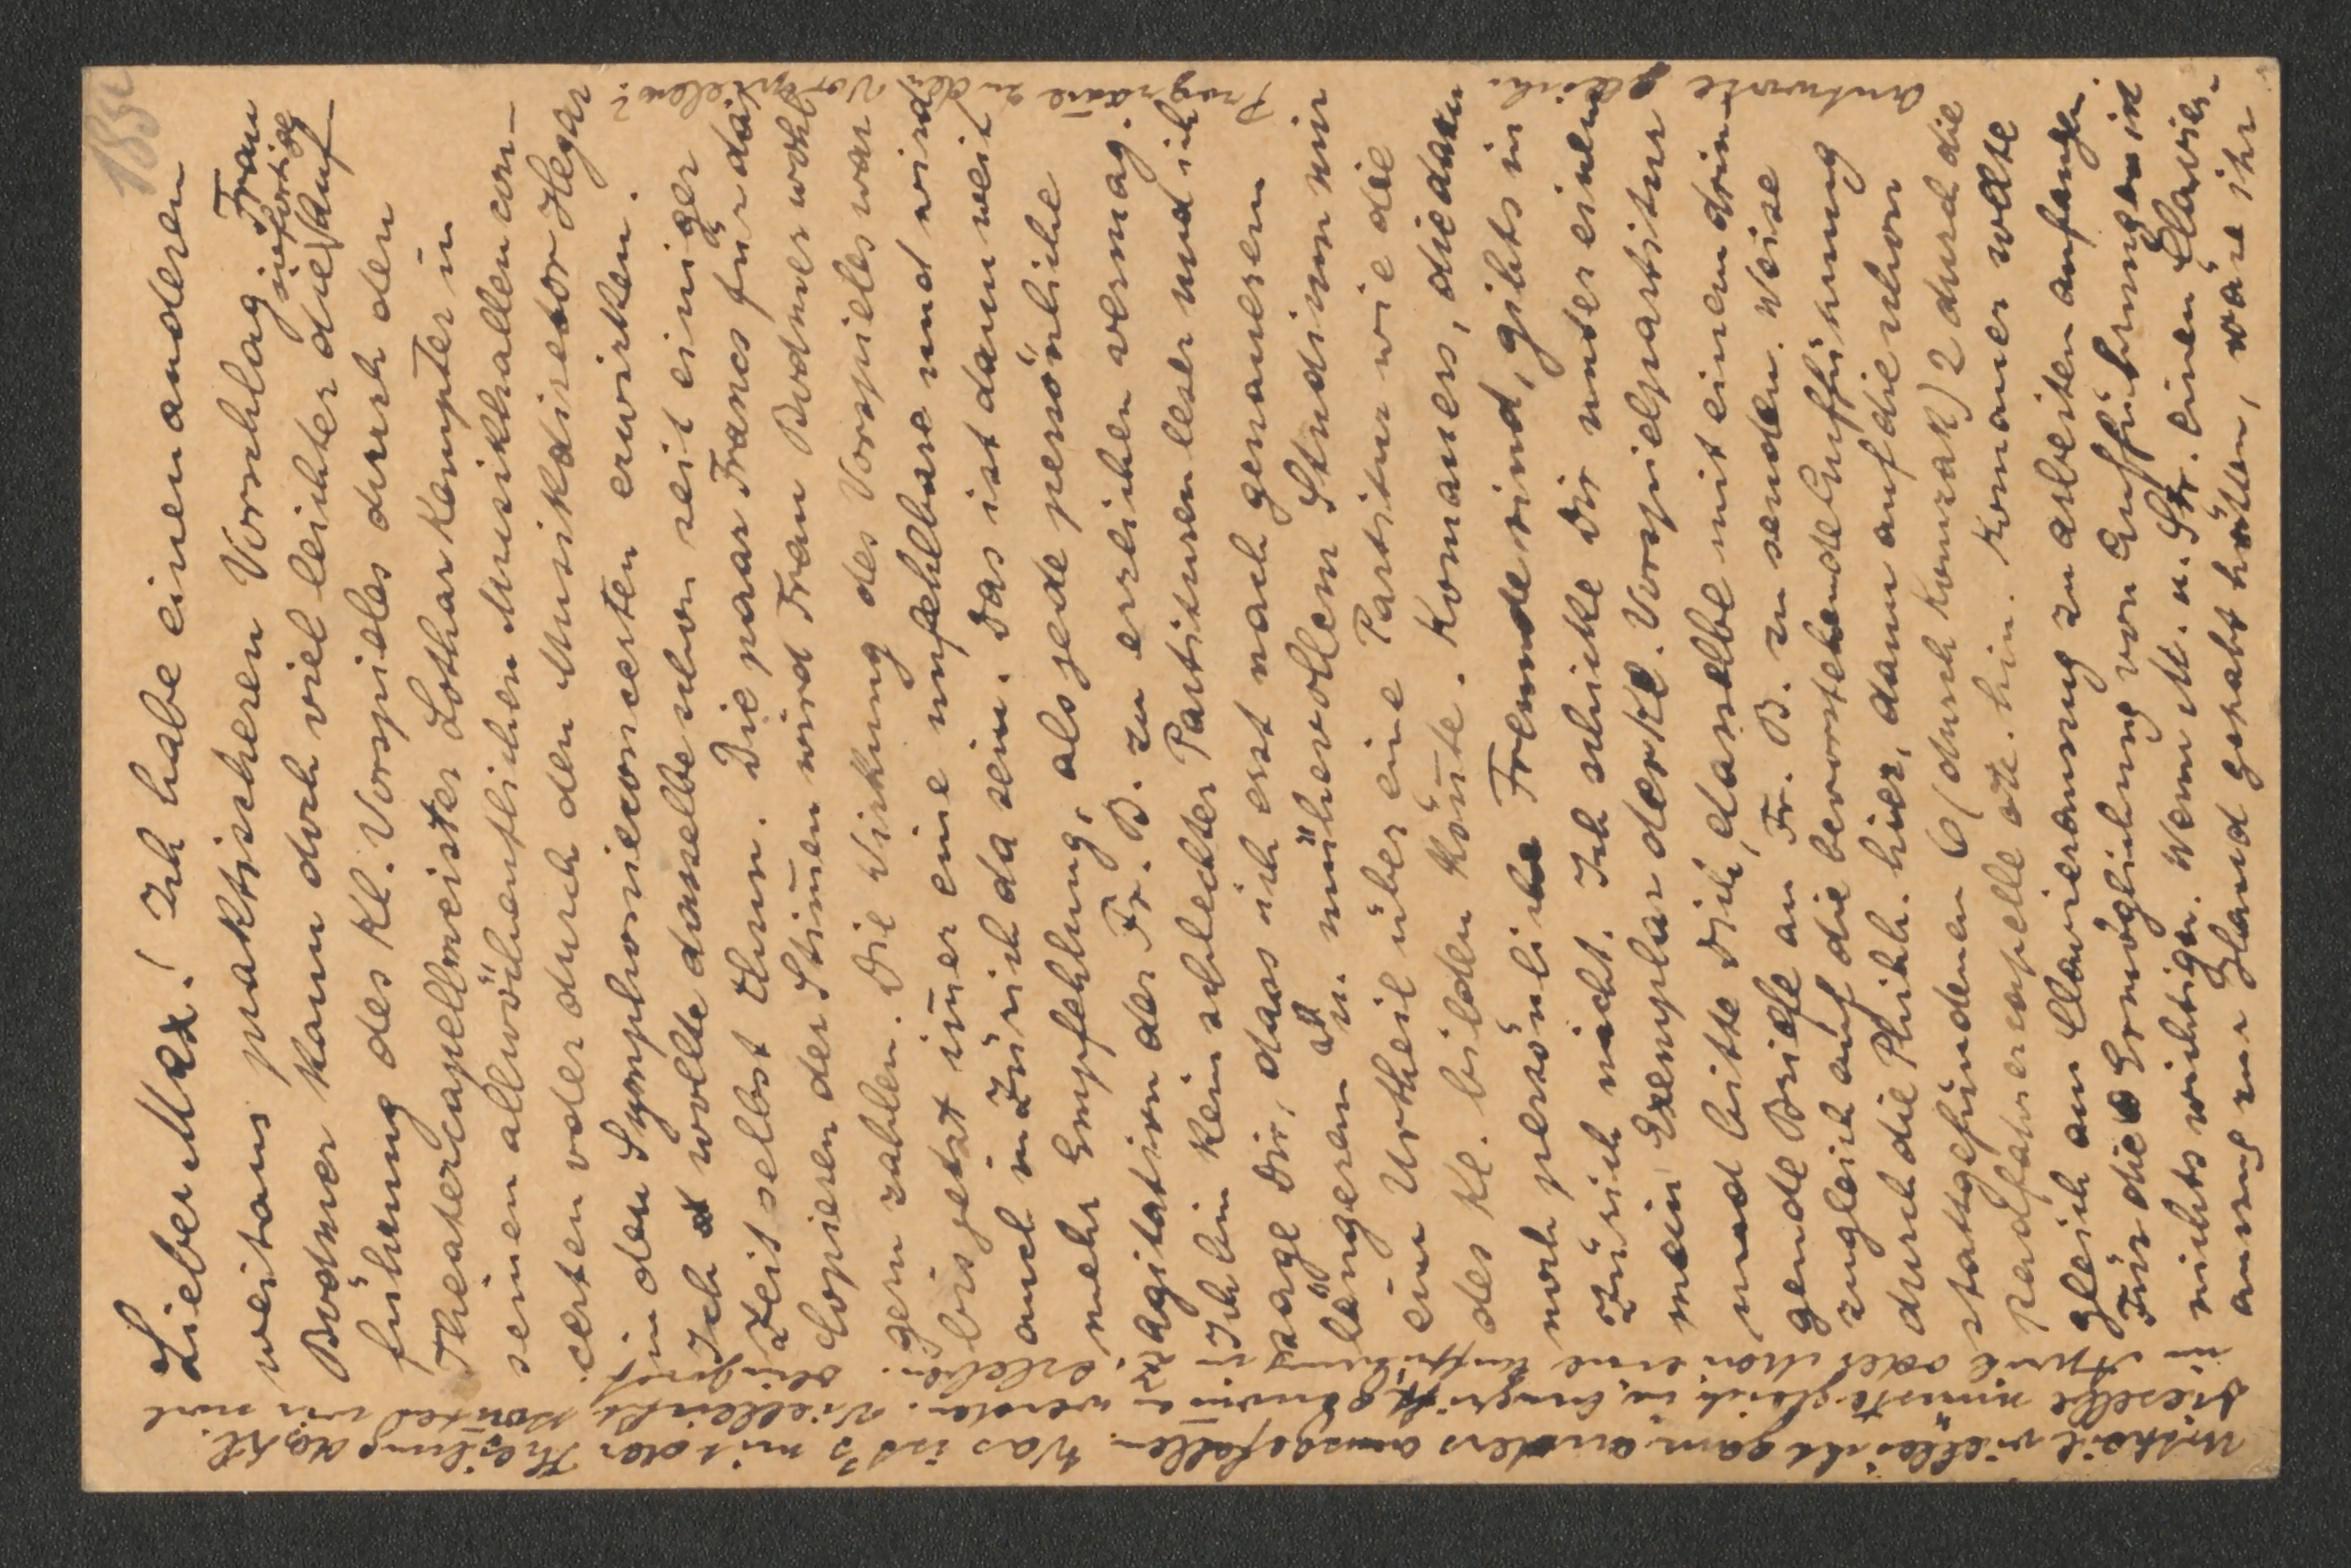 Lieber Max! Ich habe einen anderen
weitaus praktischeren Vorschlag. Frau
Bodmer kann doch viel leichter die sofortige Auf-
führung des Kl. Vorspieles durch den
Theatercapellmeister Lothar Kempter in
seinen allwöchentlichen Musikhallencon-
certen oder durch den Musikdirector Hegar
in den Symphonieconcerten erwirken.
Ich wollte dasselbe schon seit einiger
Zeit selbst thun. Die paar Francs für das
Copieren der Stimen wird Frau Bodmer wohl
gern zahlen. Die Wirkung des Vorspieles war
bis jetzt imer eine unfehlbare und wird
auch in Zürich da sein. Das ist dann weit
mehr Empfehlung, als jede persönliche
Agitation der Fr. B. zu erreichen vermag.
Ich bin kein schlechter Partiturenleser und ich
sage Dir, dass ich erst nach genauesem
längerem u. mühevollem Studium mir
ein Urtheil über eine Partitur wie die
des Kl. bilden könte. Komaners, die dazu
noch persönliche Fremde sind, gibts in
Zürich nicht. Ich schicke Dir unter einem
mein Exemplar der Kl. Vorspielpartitur
und bitte Dich, dasselbe mit einem drin-
gende Briefe an Fr. B. zu senden. Weise
zugleich auf die bevorstehende Aufführung
durch die Philh. hier, dann auf die schon
stattgefundenen 6 (durch Komzak) 2 durch die
Radfahrercapelle etc. hin. Komaner sollte
gleich am Clavierauszug zu arbeiten anfangen.
Für die Ermöglichung von Aufführungen ist
nichts wichtiger. Wenn M. u. Str. einen Clavier-
auszug zur Hand gehabt hätten, wäre ihr
Urtheil vielleicht ganz anders ausgefallen. Was ist's mit der
dieselbe müsste gleich in Angriff genomen werden. Vielleicht könten wir noch
im April oder Mai eine Aufführung in
Programe zu den Vorspielen?
Antwort gleich.